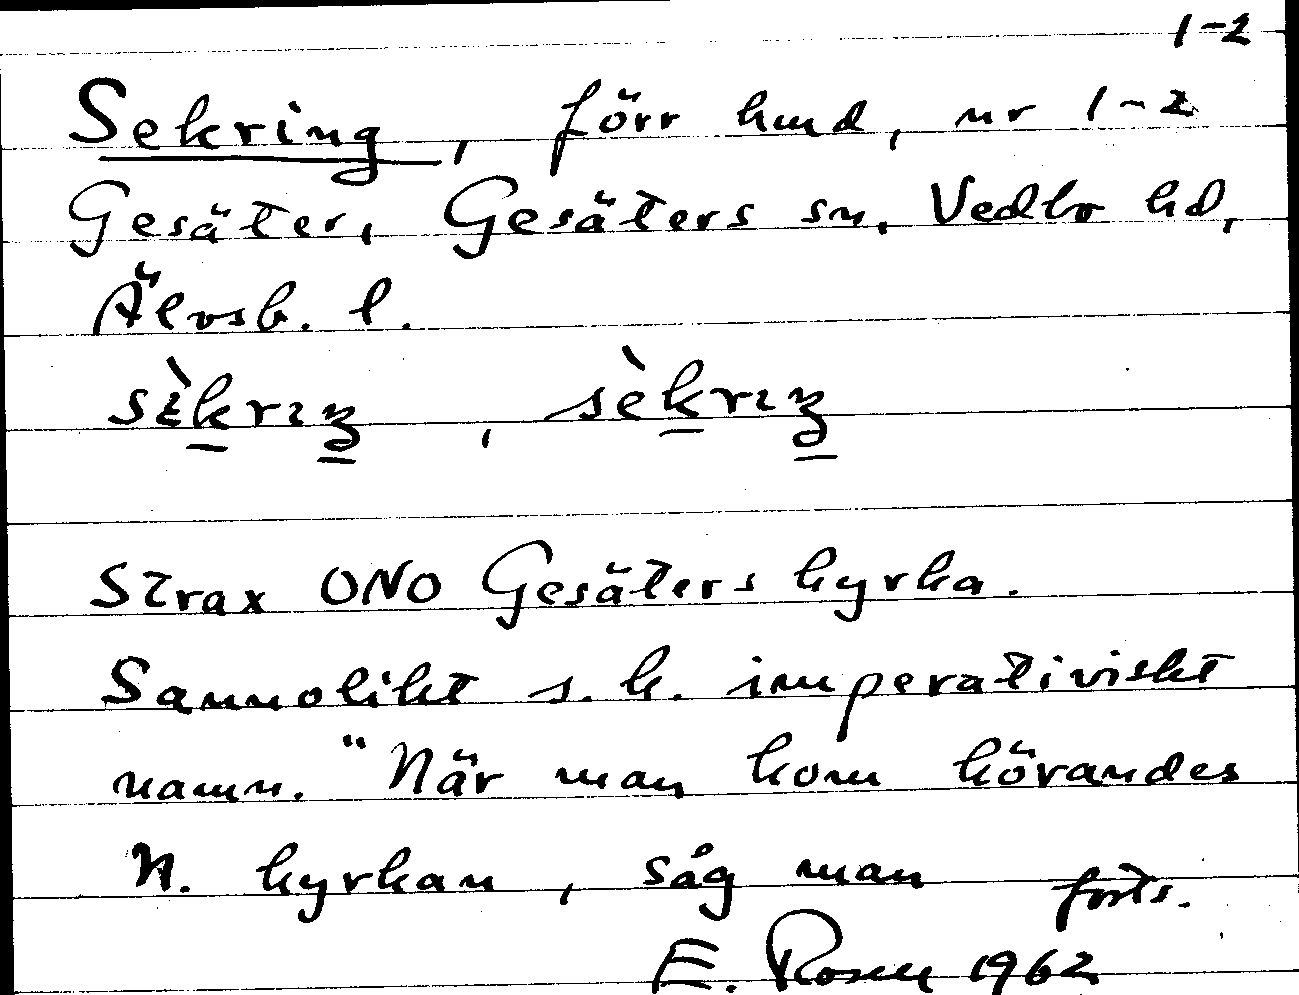 1-2
Sekring, förr hmd, nr 1-2
Gesäter, Gesäters sn, Vedbo hd,
Älvsb. l.
sɛ̀krɪŋ, sèkrɪŋ
Strax ONO Gesäters kyrka.
Sannolikt s.k. imperativiskt
namn. "När man kom körandes
N. kyrkan, såg man forts.
E. Rosen 1962